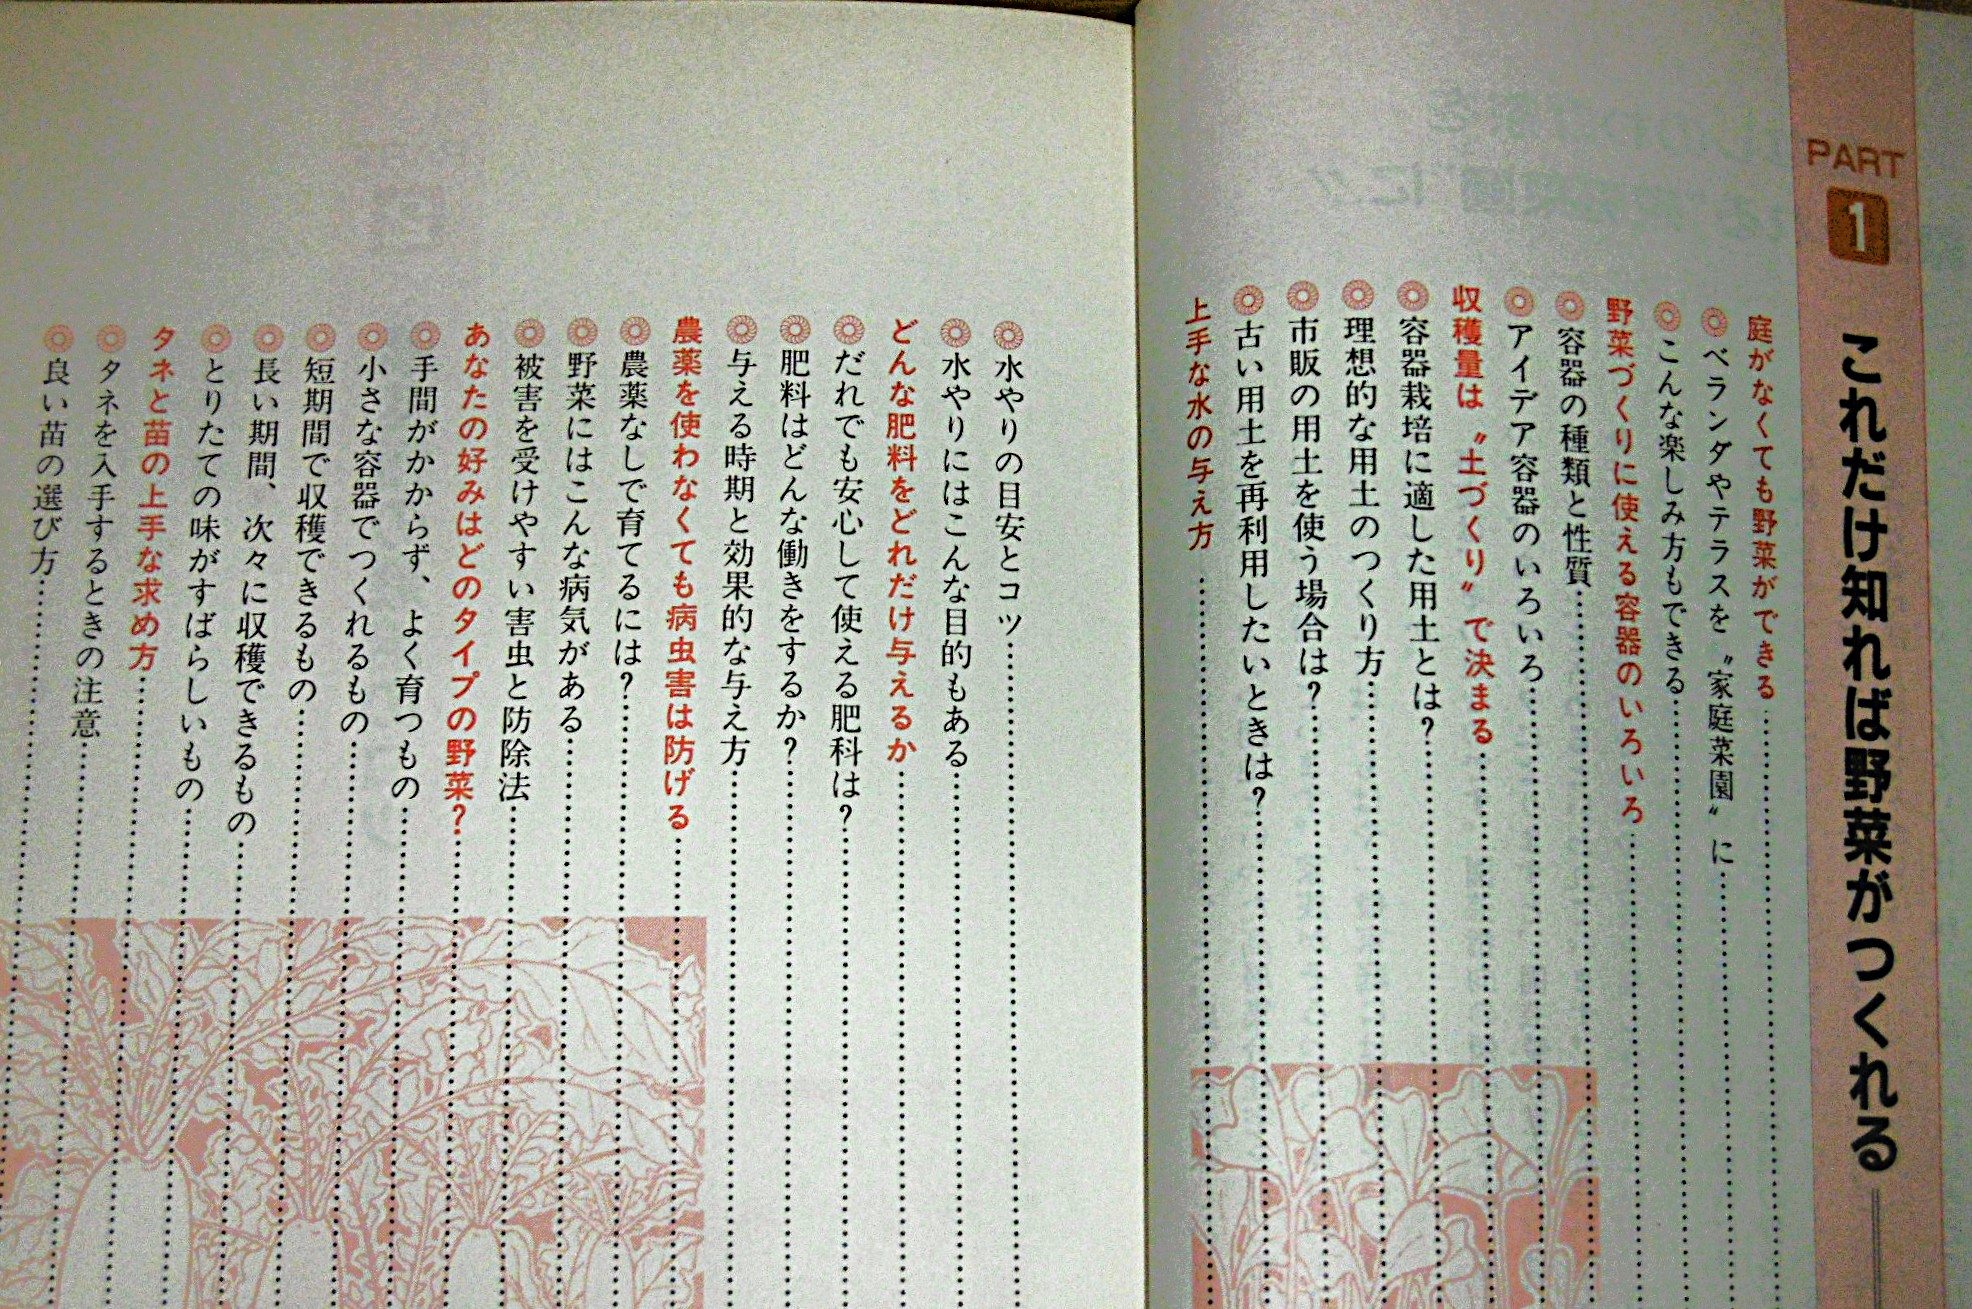 PART
1
これだけ知れば野菜がつくれる
庭がなくても野菜ができる
ベランダやテラスを〝家庭菜園〟に
こんな楽しみ方もできる
野菜づくりに使える容器のいろいろ
容器の種類と性質
アイデア容器のいろいろ
収穫量は〝土づくり〟で決まる
容器栽培に適した用土とは?
理想的な用土のつくり方
市販の用土を使う場合は?
古い用土を再利用したいときは?
上手な水の与え方
水やりの目安とコツ
水やりにはこんな目的もある
どんな肥料をどれだけ与えるか
だれでも安心して使える肥料は?
肥料はどんな働きをするか?
与える時期と効果的な与え方
農薬を使わなくても病虫害は防げる
農薬なしで育てるには?
野菜にはこんな病気がある
被害を受けやすい害虫と防除法
あなたの好みはどのタイプの野菜?
手間がかからず、よく育つもの
小さな容器でつくれるもの
短期間で収穫できるもの
長い期間、次々に収穫できるもの
とりたての味がすばらしいもの
タネと苗の上手な求め方
タネを入手するときの注意
良い苗の選び方